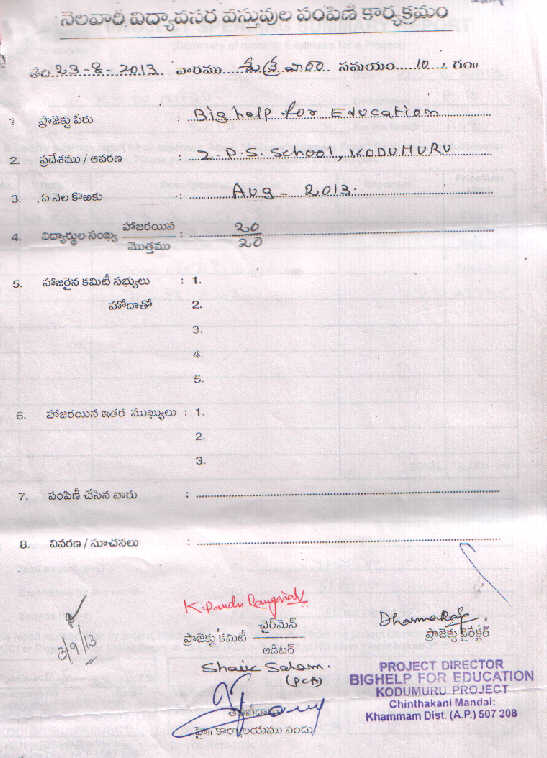 నెలవారీ విద్యావసర వస్తువుల పంపిణీ కార్యక్రమం
తేది 23-8-2013 వారము శుక్రవారం సమయం 10 గం॥
1 ప్రాజెక్టు పేరు : Big help for Education
2. ప్రదేశము / ఆవరణ : Z.P.S. School, KODUMURU
3. ఏ నెల కొఱకు : Aug - 2013.
4. విద్యార్థుల సంఖ్య హాజరయిన : 20
మొత్తము 20
5. హాజరైన కమిటీ సభ్యులు : 1.
హోదాతో 2.
3.
4.
5.
6. హాజరయిన ఇతర ముఖ్యులు : 1.
2.
3.
7. పంపిణీ చేసిన వారు :
8. వివరణ / సూచనలు :
3/9/13
ప్రాజెక్టు కమిటీ చైర్‌మెన్
ఆడిటర్
ప్రాజెక్టు డైరెక్టర్
Shaik Salam.
(PCA)
PROJECT DIRECTOR
BIGHELP FOR EDUCATION
KODUMURU PROJECT
Chinthakani Mandal:
Khammam Dist. (A.P.) 507 208